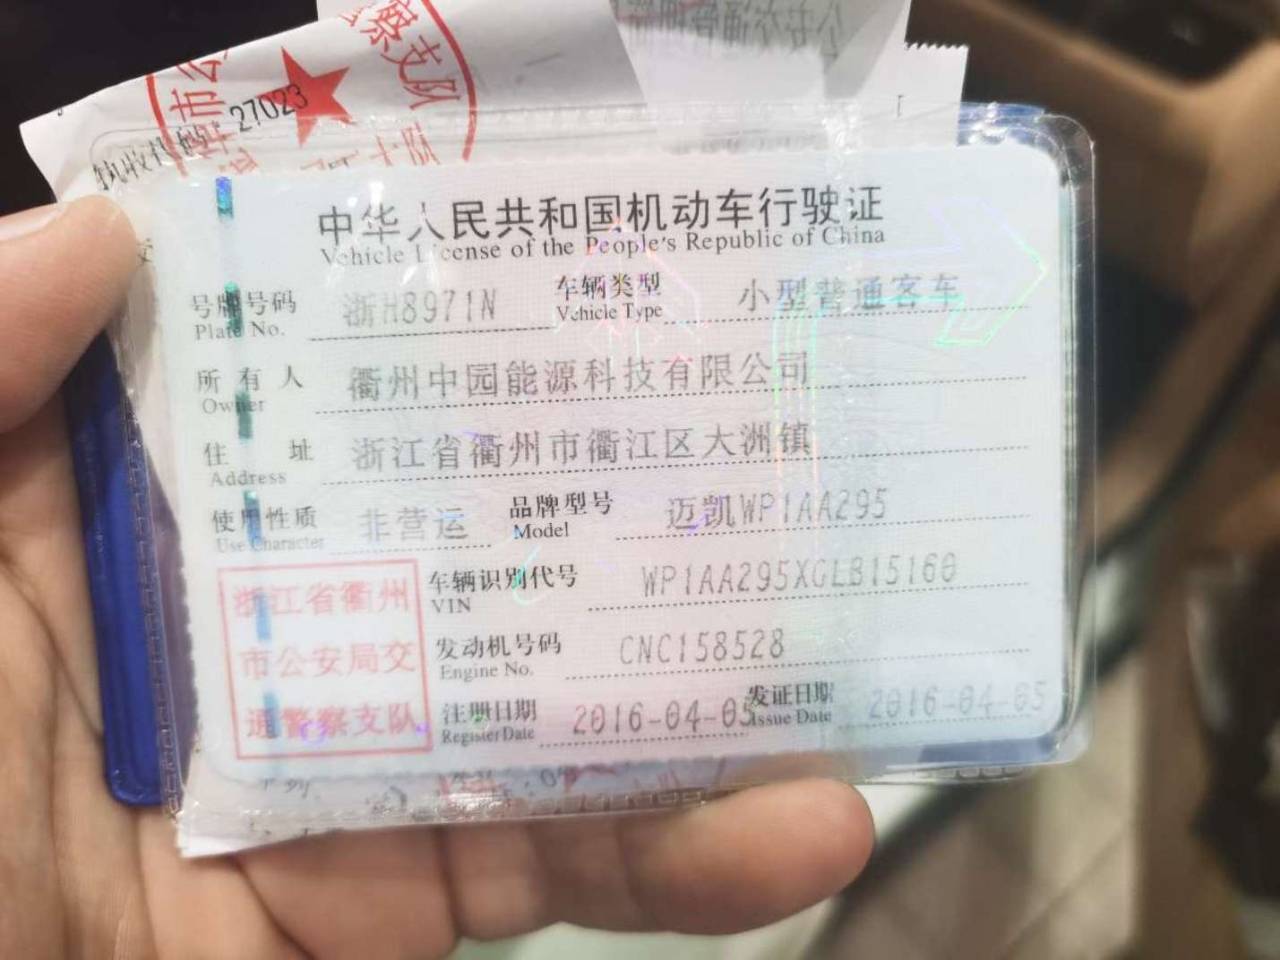 27023
中华人民共和国机动车行驶证
Vehicle License of the People's Republic of China
号牌号码 浙H8971N 车辆类型 小型普通客车
Plate No. Vehicle Type
所有人 衢州中园能源科技有限公司
Owner
住址 浙江省衢州市衢江区大洲镇
Address
使用性质 非营运 品牌型号 迈凯WP1AA295
Use Character Model
浙江省衢州
市公安局交
通警察支队
车辆识别代号 WP1AA295XGLB15160
VIN
发动机号码 CNC158528
Engine No.
注册日期 2016-04-05 发证日期 2016-04-05
Register Date Issue Date